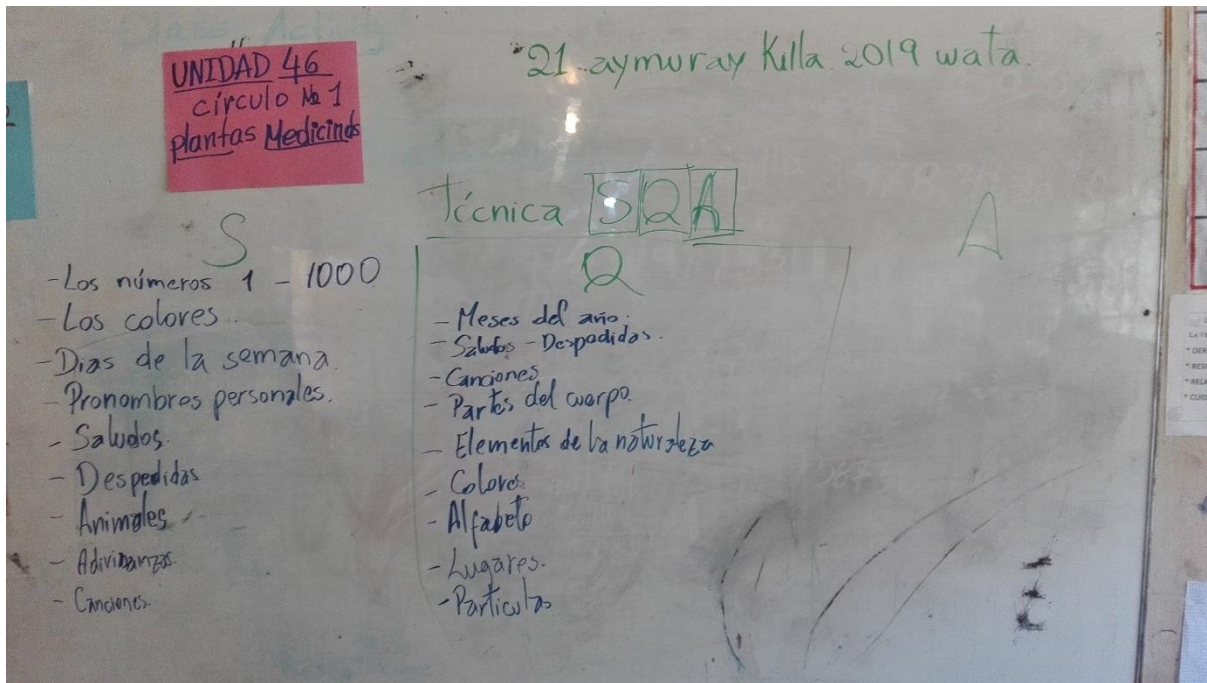 UNIDAD 46
círculo No 1
plantas Medicinds
21 aymuray Killa 2019 wata.
Técnica SQA
S
- Los números 1 - 1000
- Los colores.
- Dias de la semana.
- Pronombres personales.
- Saludos.
- Despedidas
- Animales
- Adivinanzas.
- Canciones.
Q
- Meses del año.
- Saludos - Despedidas.
- Canciones
- Partes del cuerpo.
- Elementos de la naturaleza
- Colores
- Alfabeto
- Lugares.
- Particulas
A